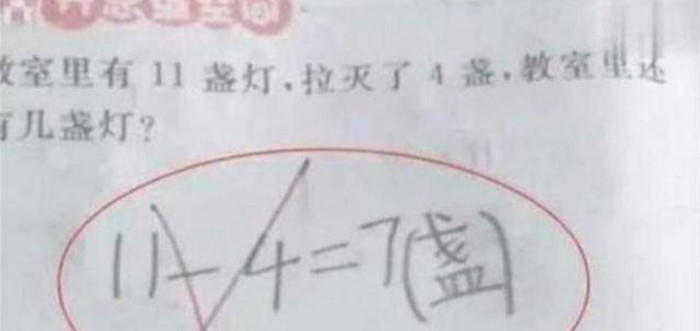 思维空间
教室里有 11 盏灯,拉灭了 4 盏,教室里还
有几盏灯?
11-4=7(盏)